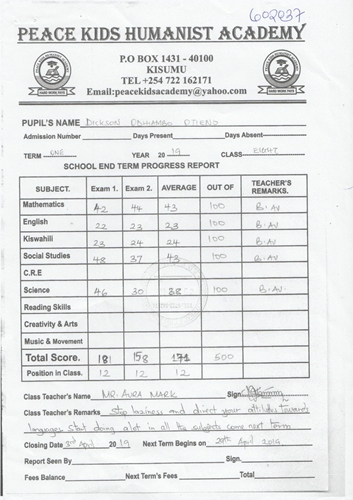 602037
PEACE KIDS HUMANIST ACADEMY
P.O BOX 1431 - 40100
KISUMU
TEL +254 722 162171
Email:peacekidsacademy@yahoo.com
HARD WORK PAYS HARD WORK PAYS
PUPIL'S NAME DICKSON ONYANGO OTIENO
Admission Number Days Present Days Absent
TERM ONE YEAR 2019 CLASS EIGHT
SCHOOL END TERM PROGRESS REPORT
SUBJECT. Exam 1. Exam 2. AVERAGE OUT OF TEACHER'S REMARKS.
Mathematics 42 44 43 100 B.AV
English 22 23 23 100 B.AV
Kiswahili 23 24 24 100 B.AV
Social Studies 48 37 43 100 B.AV
C.R.E
Science 46 30 38 100 B.AV
Reading Skills
Creativity & Arts
Music & Movement
Total Score. 181 158 171 500
Position in Class. 12 12 12
Class Teacher's Name MR. AURA MARK Sign
Class Teacher's Remarks stop business and direct your attitudes towards
languages start doing alot in all the subjects come next term
Closing Date 3rd April 2019 Next Term Begins on 29th April 2019
Report Seen By Sign.
Fees Balance Next Term's Fees Total